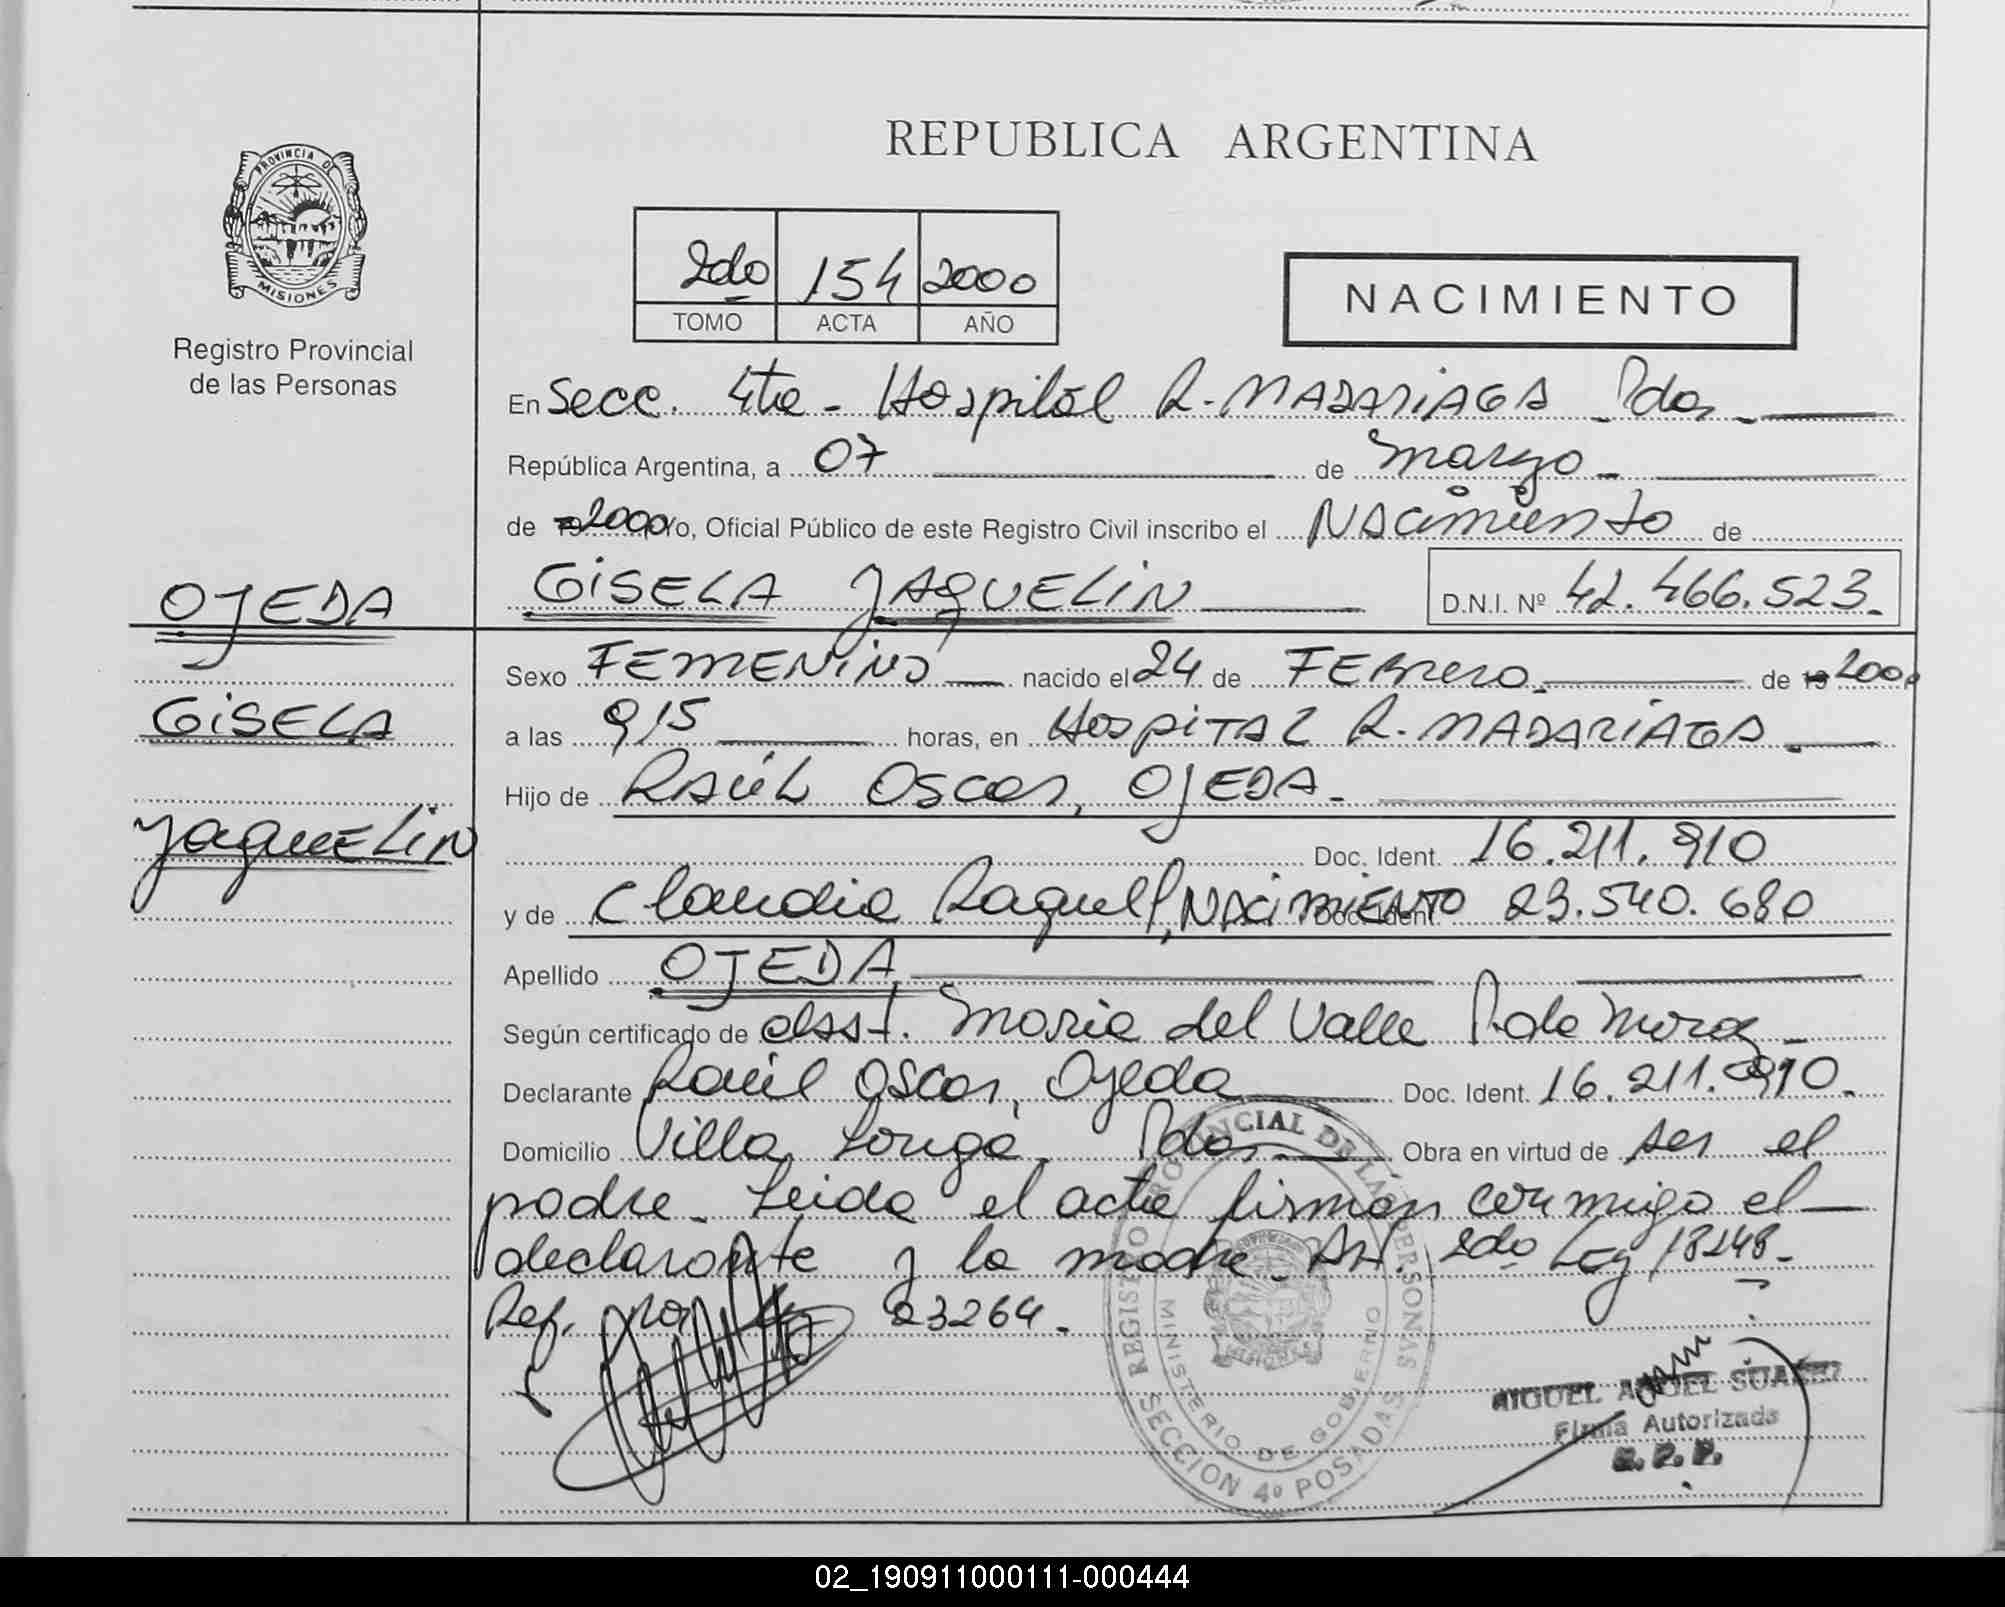 REPUBLICA ARGENTINA
PROVINCIA DE
MISIONES
Registro Provincial
de las Personas
2do 154 2000
TOMO ACTA AÑO
NACIMIENTO
En Secc. 4ta - Hospital R. MADARIAGA - Pdas -
República Argentina, a 07 de marzo -
de 2000 Yo, Oficial Público de este Registro Civil inscribo el NACimiento de
OJEDA
GISELA JAQUELIN D.N.I. Nº 42.466.523.
Sexo FEMENINO nacido el 24 de FEBrero. de 19 2000
GISELA
a las 9,15 horas, en HOSPITAL R. MADARIAGA -
Hijo de RAÚL Oscar, OJEDA -
JaquELiN
Doc. Ident. 16.211.910
y de Claudia Raquel, NACIMIENTO Doc. Ident. 23.540.680
Apellido OJEDA
Según certificado de María del Valle
Declarante Raúl Oscar, Ojeda Doc. Ident. 16.211.910.
Domicilio Villa Longa - Pdas - Obra en virtud de ser el
padre - Leida el acta firman conmigo el
declarante y la madre - 2do Ley 18248 -
Ref. por Ley 23264 -
REGISTRO PROVINCIAL DE LAS PERSONAS
MINISTERIO DE GOBIERNO
SECCION 4º POSADAS
MIGUEL ANGEL SUAREZ
Firma Autorizada
R. P. P.
02_190911000111-000444